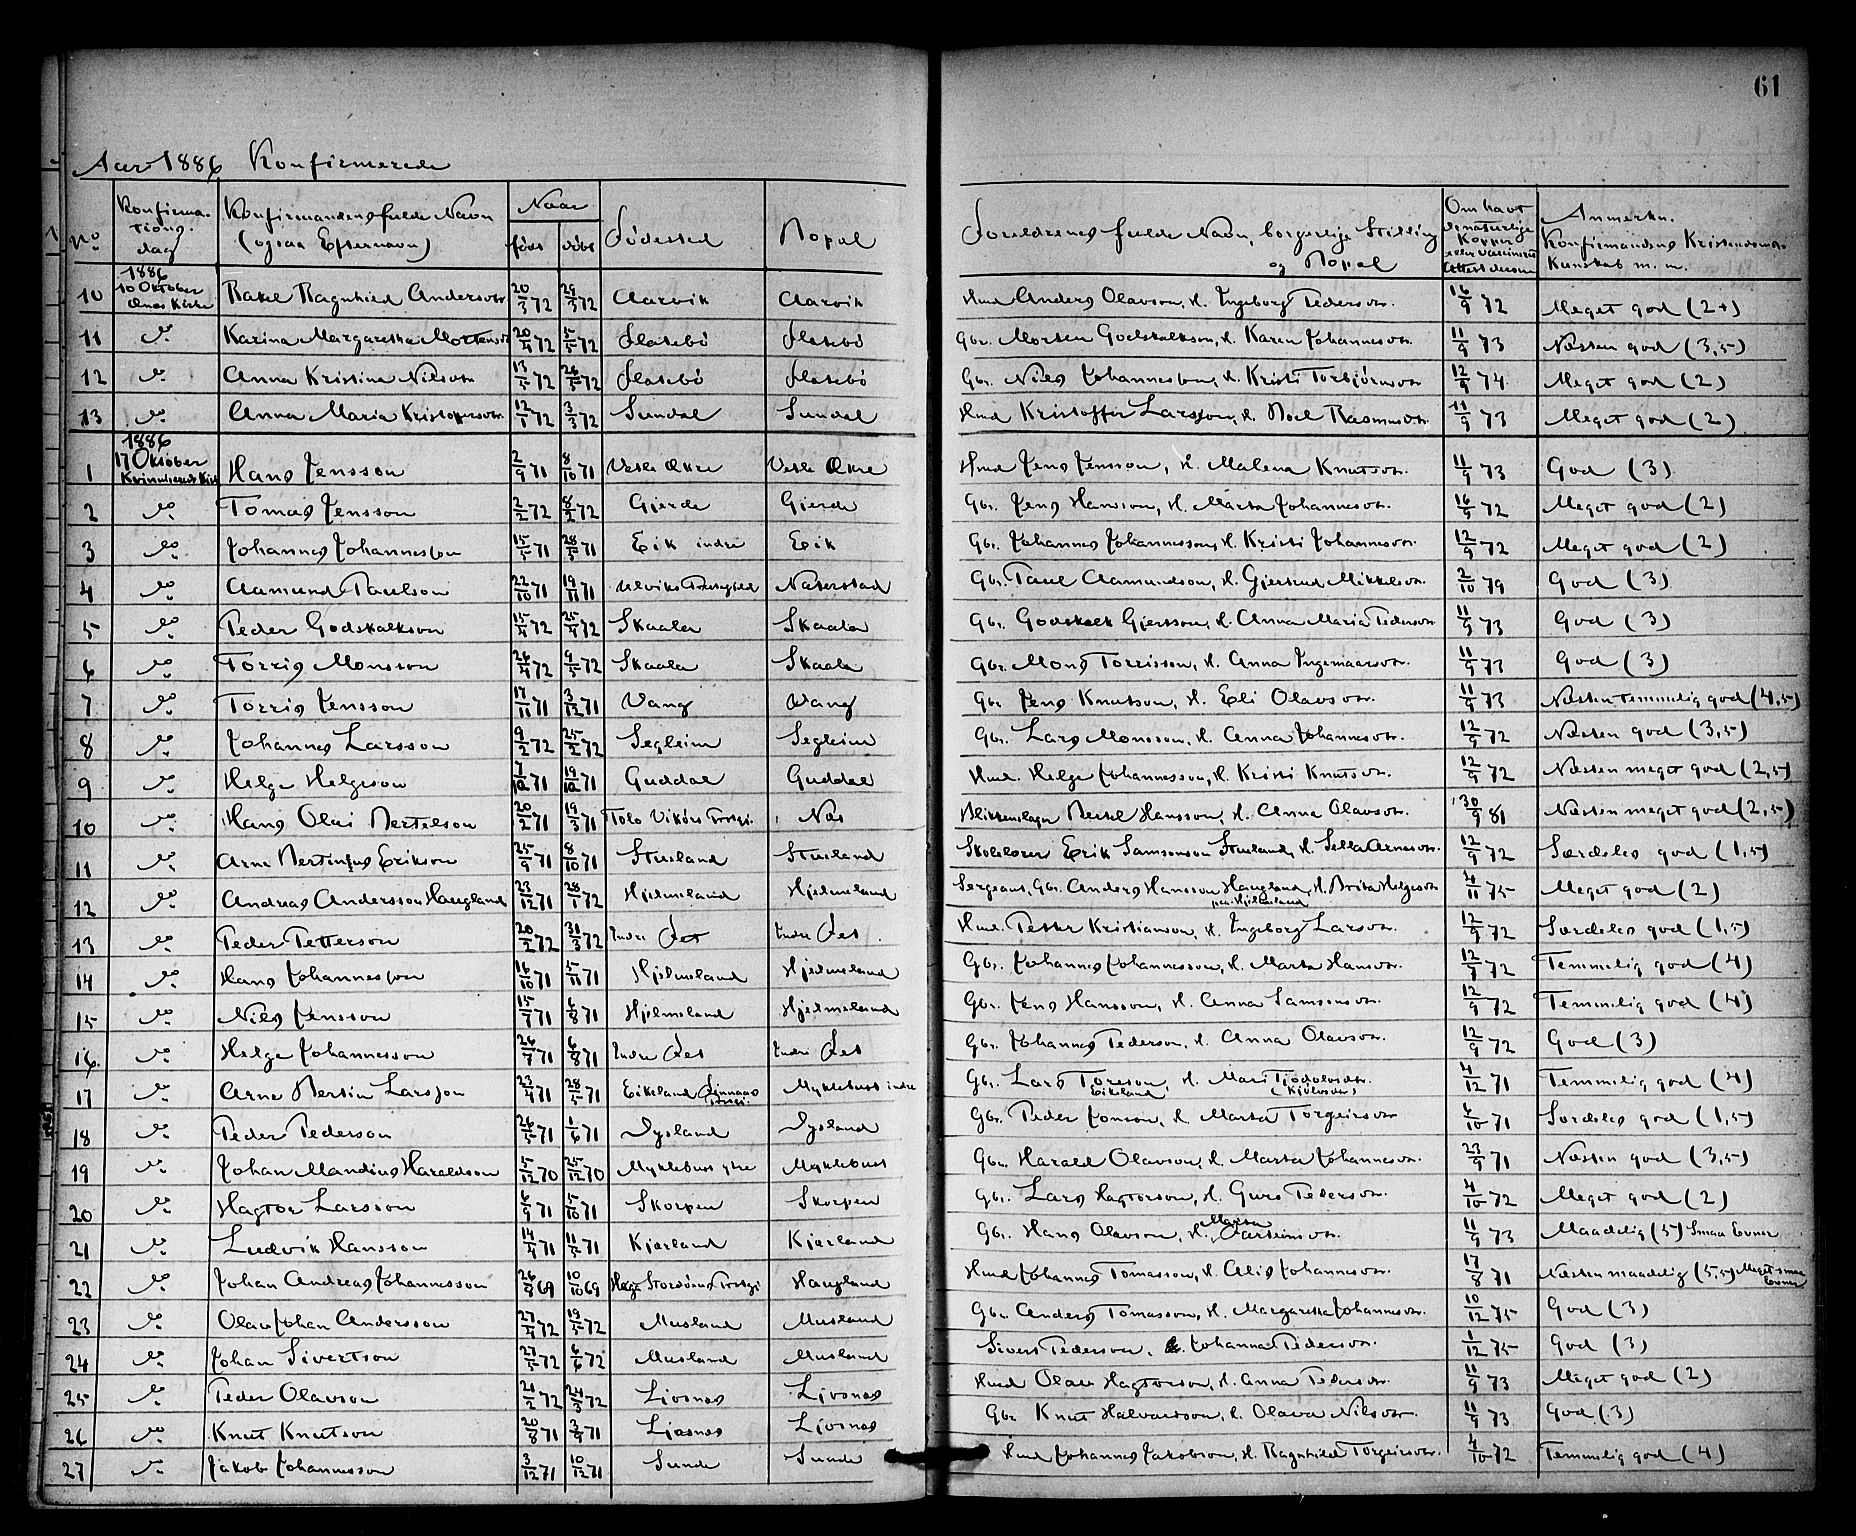 61
Aar 1886 Konfirmerede
No | Konfirmations dag | Konfirmandens fulde Navn (ogsaa Efternavn) | Naar født | døbt | Fødested | Bopæl | Forældrenes fulde Navn, borgerlige Stilling og Bopæl | Om havt de naturlige Kopper eller vaccineret Attest derom | Anmerkn. Konfirmandens Kristendoms-Kunskab m. m.
10 | 1886 10 Oktober Ænes Kirke | Rakel Ragnhild Andersdtr. | 20/3 72 | 29/3 72 | Aarvik | Aarvik | Hmd Anders Olavson, H. Ingeborg Pedersdtr. | 16/9 72 | Meget god (2+)
11 | do | Karina Margaretha Mortensdtr | 20/4 72 | 5/5 72 | Flatebö | Flatebö | Gbr. Morten Godskalkson, H. Karen Johannesdtr. | 11/9 73 | Næsten god (3,5)
12 | do | Anna Kristina Nilsdtr. | 13/5 72 | 26/5 72 | Flatebö | Flatebö | Gbr. Nils Johannesson, H. Kristi Torbjörnsdtr | 12/9 74 | Meget god (2)
13 | do | Anna Maria Kristoffersdtr. | 12/1 72 | 3/3 72 | Sundal | Sundal | Hmd Kristoffer Larsson, H. Boel Rasmusdtr. | 11/9 73 | Meget god (2)
1 | 1886 17 Oktober Kvinnherad Kirk | Hans Jensson | 2/9 71 | 8/10 71 | Vetle Ækre | Vetle Ækre | Hmd Jens Jensson, H. Malena Knutsdtr. | 11/9 73 | God (3)
2 | do | Tomas Jensson | 2/2 72 | 8/2 72 | Gjerde | Gjerde | Gbr. Jens Hansson, H. Marta Johannesdtr. | 16/9 72 | Meget god (2)
3 | do | Johannes Johannesson | 15/5 71 | 28/5 71 | Eik indre | Eik | Gbr. Johannes Johannesson, H. Kristi Johannesdtr. | 12/9 72 | Meget god (2)
4 | do | Aamund Paulson | 22/10 71 | 19/11 71 | Ulviks Prestegjeld | Naterstad | Gbr. Paul Aamundson, H. Gjertrud Mikkelsdtr. | 2/10 79 | God (3)
5 | do | Peder Godskalkson | 15/4 72 | 25/4 72 | Skaala | Skaala | Gbr. Godskalk Gjertsson, H. Anna Maria Pedersdtr. | 11/9 73 | God (3)
6 | do | Torris Monsson | 26/4 72 | 9/5 72 | Skaala | Skaala | Gbr. Mons Torrisson, H. Anna Ingemarsdtr. | 11/9 73 | God (3)
7 | do | Torris Jensson | 17/11 71 | 3/12 71 | Vang | Vang | Gbr. Jens Knutsson, H. Eli Olavsdtr. | 11/9 73 | Næsten temmelig god (4,5)
8 | do | Johannes Larsson | 9/2 72 | 25/2 72 | Segleim | Segleim | Gbr. Lars Monsson, H. Anna Johannesdtr. | 12/9 72 | Næsten god (3,5)
9 | do | Helge Helgeson | 7/12 71 | 19/12 71 | Guddal | Guddal | Hmd. Helge Johannesson, H. Kristi Knutsdtr. | 12/9 72 | Næsten meget god (2,5)
10 | do | Hans Olai Bertelson | 20/2 71 | 19/3 71 | Tolo Vikörs Prstgj. | Næs | Blikkenslager Bertel Hansson, H. Anna Olavsdtr. | 30/9 81 | Næsten meget god (2,5)
11 | do | Arne Bertinius Erikson | 25/9 71 | 8/10 71 | Stueland | Stueland | Skolelærer Erik Samsonson Stueland, H. Sella Arnesdtr. | 12/9 72 | Særdeles god (1,5)
12 | do | Andreas Andersson Haugland | 23/12 71 | 28/1 72 | Hjelmeland | Hjelmeland | Sergeant, Gbr. Anders Hansson Haugland, H. Brita Helgesdtr paa Hjelmeland | 4/11 75 | Meget god (2)
13 | do | Peder Petterson | 20/2 72 | 31/3 72 | Indre Æet | Indre Æet | Hmd. Petter Kristianson, H. Ingeborg Larsdtr. | 12/9 72 | Særdeles god (1,5)
14 | do | Hans Johannesson | 16/10 71 | 5/11 71 | Hjelmeland | Hjelmeland | Gbr. Johannes Johannesson, H. Marta Hansdtr. | 12/9 72 | Temmelig god (4)
15 | do | Nils Jensson | 15/7 71 | 6/8 71 | Hjelmeland | Hjelmeland | Gbr. Jens Hansson, H. Anna Samsonsdtr. | 12/9 72 | Temmelig god (4)
16. | do | Helge Johannesson | 26/7 71 | 6/8 71 | Indre Æet | Indre Æet | Gbr. Johannes Pederson, H. Anna Olavsdtr. | 12/9 72 | God (3)
17 | do | Arne Bertin Larsson | 23/4 71 | 28/5 71 | Eikeland Finnaas Prstgj. | Myklebust indre | Gbr. Lars Toreson Eikeland, H. Mari Tjodolvsdtr. (Kjölvsdtr) | 4/12 71 | Temmelig god (4)
18 | do | Peder Pederson | 26/5 71 | 1/6 71 | Dysland | Dysland | Gbr. Peder Jonson, H. Marta Torgeirsdtr | 6/10 71 | Særdeles god (1,5)
19 | do | Johan Mandius Haraldson | 5/12 70 | 25/12 70 | Myklebust ytre | Myklebust | Gbr. Harald Olavson, H. Marta Johannesdtr. | 23/9 71 | Næsten god (3,5)
20 | do | Hagtor Larsson | 6/9 71 | 5/10 71 | Skorpen | Skorpen | Gbr. Lars Hagtorson, H. Guro Pedersdtr. | 4/10 72 | Meget god (2)
21 | do | Ludvik Hansson | 14/4 71 | 11/5 71 | Kjærland | Kjærland | Gbr. Hans Olavson, H. Marta Farteinsdtr. | 11/9 73 | Maadelig (5) Smaa Evner
22 | do | Johan Andreas Johannesson | 26/8 69 | 10/10 69 | Hage Stordöens Prstgj | Haugland | Hmd Johannes Tomasson, H. Alis Johannesdtr. | 17/8 71 | Næsten maadelig (5,5) Meget smaa Evner
23 | do | Olav Johan Andersson | 27/4 72 | 19/5 72 | Musland | Musland | Gbr. Anders Tomasson, H. Margaretha Johannesdtr. | 10/12 75 | God (3)
24 | do | Johan Sivertson | 27/5 72 | 6/6 72 | Musland | Musland | Sivert Pederson, H. Johanna Pedersdtr. | 1/12 75 | God (3)
25 | do | Peder Olavson | 21/2 72 | 24/3 72 | Ljosnes | Ljosnes | Hmd Olav Hagtorson, H. Anna Pedersdtr. | 11/9 73 | Meget god (2)
26 | do | Knut Knutson | 20/8 71 | 3/9 71 | Ljosnes | Ljosnes | Gbr Knut Halvardson, H. Olava Nilsdtr. | 11/9 73 | God (3)
27 | do | Jakob Johannesson | 3/12 71 | 10/12 71 | Sunde | Sunde | Hmd Johannes Jakobson, H. Ragnhild Torgeirsdtr. | 4/10 72 | Temmelig god (4)